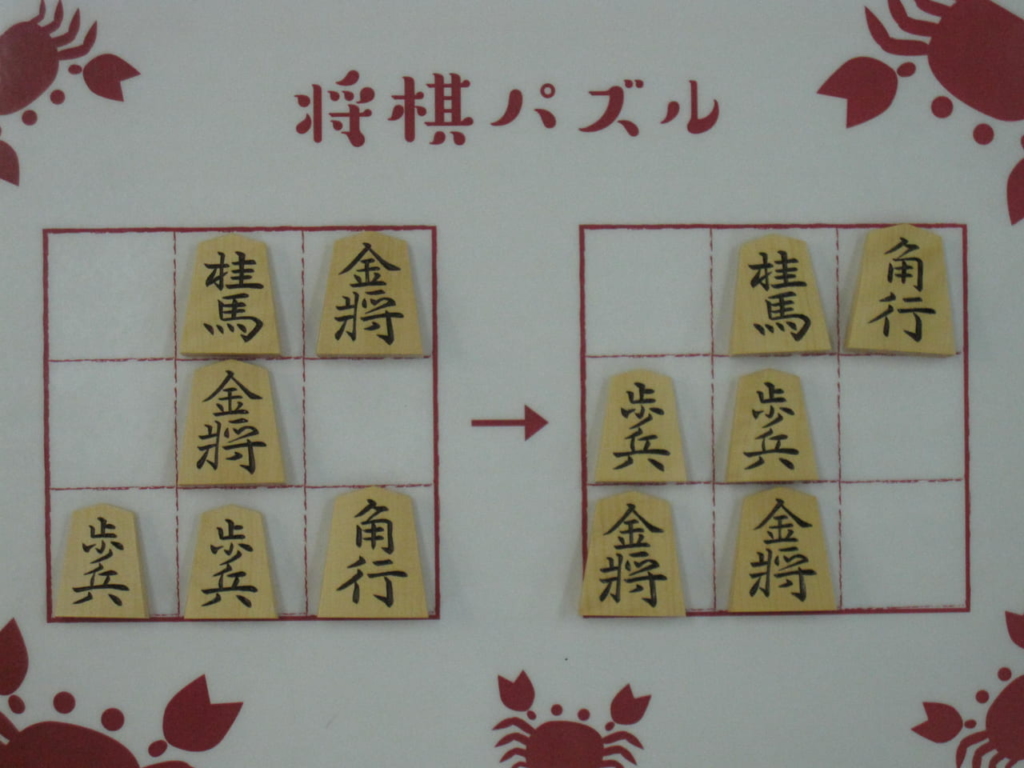 将棋パズル
桂馬 金將
金將
歩兵 歩兵 角行
桂馬 角行
歩兵 歩兵
金將 金將